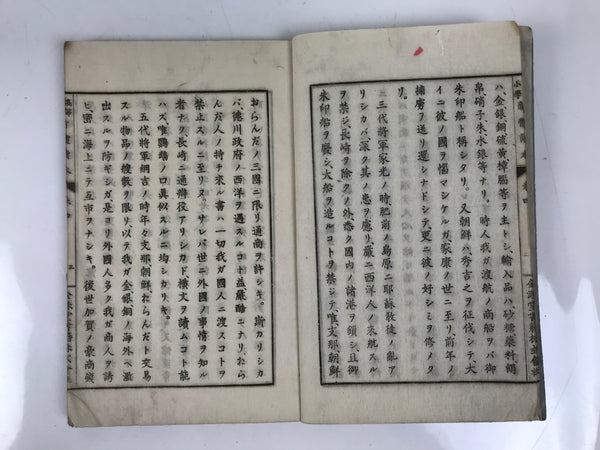 ハ、金、銀、銅、硫黄、樟腦等ヲ主トシ、輸入品ハ、砂糖、藥料、絹
帛、硝子、朱、水銀等ナリ、時人我ガ渡航ノ商船ヲバ御
朱印船ト稱シタリ、又朝鮮ハ、秀吉之ヲ征伐シテ、大
イニ彼ノ國ヲ惱マシケルガ、家康ノ世ニ至リ、前年ノ
捕虜ヲ送リ還シナドシテ、更ニ彼ノ好シミヲ修メタ
リ、
三代將軍家光ノ時、肥前ノ島原ニ耶蘇教徒ノ亂ア
リシカバ、深ク其ノ惡ヲ慮リ、嚴ニ西洋人ノ來航スル
ヲ禁シ、長崎ヲ除クノ外、悉ク國内ノ諸港ヲ鎖シ、且御
朱印船ヲ襲シ、大船ヲ造ルコトヲ禁シテ、唯支那朝鮮
おらんだノ三國ニ限リ、通商ヲ許シキ、斯カリシカ
バ、德川政府ノ西洋ヲ遇スルコト益嚴酷ニナリ、おら
んだ人ノ持チ來ル書ハ、一切我ガ國人ニ渡スコトヲ
禁止スルニ至リヌ、サレバ世ニ外國ノ事情ヲ知ル
者ナク、長崎ニ通辯役アリシカド、横文ヲ讀ムコト能
ハズ、唯鸚鵡ノ口眞似スルニ均シカリキ、
五代將軍綱吉ノ時、年々支那朝鮮おらんだト交易
スル物品ノ艘數ヲ限リ、以テ我ガ金銀銅ノ海外ヘ濫
出スルヲ防ギシガ、是ヨリ外國人多ク我ガ商人ヲ誘
ヒ、密ニ海上ニテ互市ヲナシキ、後世加賀ノ豪商錢